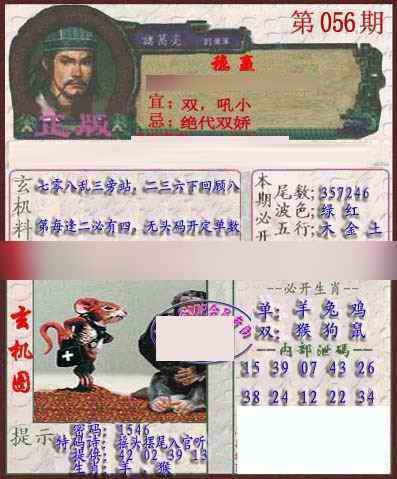 第056期
諸葛亮
正版
宜：双，吼小
忌：绝代双娇
玄机料
七零八乱三旁站，二三六下回顾八
第每逢二必有四，无头码开定单数
本期必开
尾数；357246
波色；绿 红
五行；木 金 土
玄机图
--必开生肖--
单：羊 兔 鸡
双：猴 狗 鼠
--内部泄码--
15 39 07 43 26
38 24 12 22 34
提示
密码：1546
特码诗：摇头摆尾入官听
提倍：42 02 39 13
生肖：羊、猴